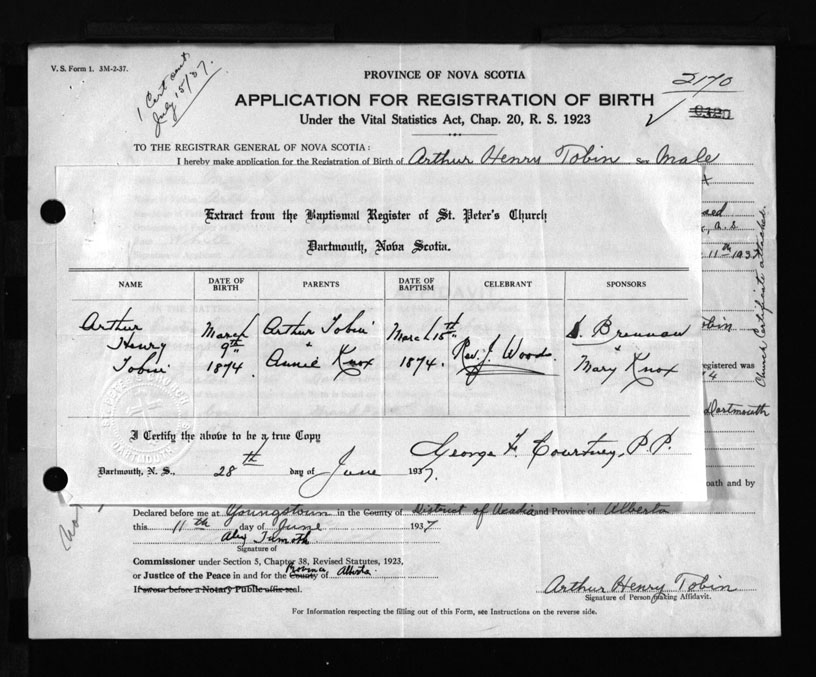 V. S. Form 1. 3M-2-37.
1 Cert sent
July 15/37.
PROVINCE OF NOVA SCOTIA
2170
APPLICATION FOR REGISTRATION OF BIRTH
Under the Vital Statistics Act, Chap. 20, R. S. 1923
TO THE REGISTRAR GENERAL OF NOVA SCOTIA:
I hereby make application for the Registration of Birth of Arthur Henry Tobin Sex Male
Extract from the Baptismal Register of St. Peter's Church
Dartmouth, Nova Scotia.
NAME DATE OF BIRTH PARENTS DATE OF BAPTISM CELEBRANT SPONSORS
Arthur March Arthur Tobin March 15th Brennan
Henry 9th + Rev. J. Woods. +
Tobin 1874 Annie Knox 1874. Mary Knox
11th 1937
Church Certificate attached.
egistered was
Dartmouth
I Certify the above to be a true Copy
George F. Courtney, P.P.
Dartmouth, N. S., 28th day of June 1937.
oath and by
Declared before me at Youngstown in the County of District of Acadia and Province of Alberta
this 11th day of June 1937
Signature of
Commissioner under Section 5, Chapter 38, Revised Statutes, 1923,
or Justice of the Peace in and for the County of Province Alberta.
If sworn before a Notary Public affix seal.
Arthur Henry Tobin
Signature of Person making Affidavit.
For Information respecting the filling out of this Form, see Instructions on the reverse side.